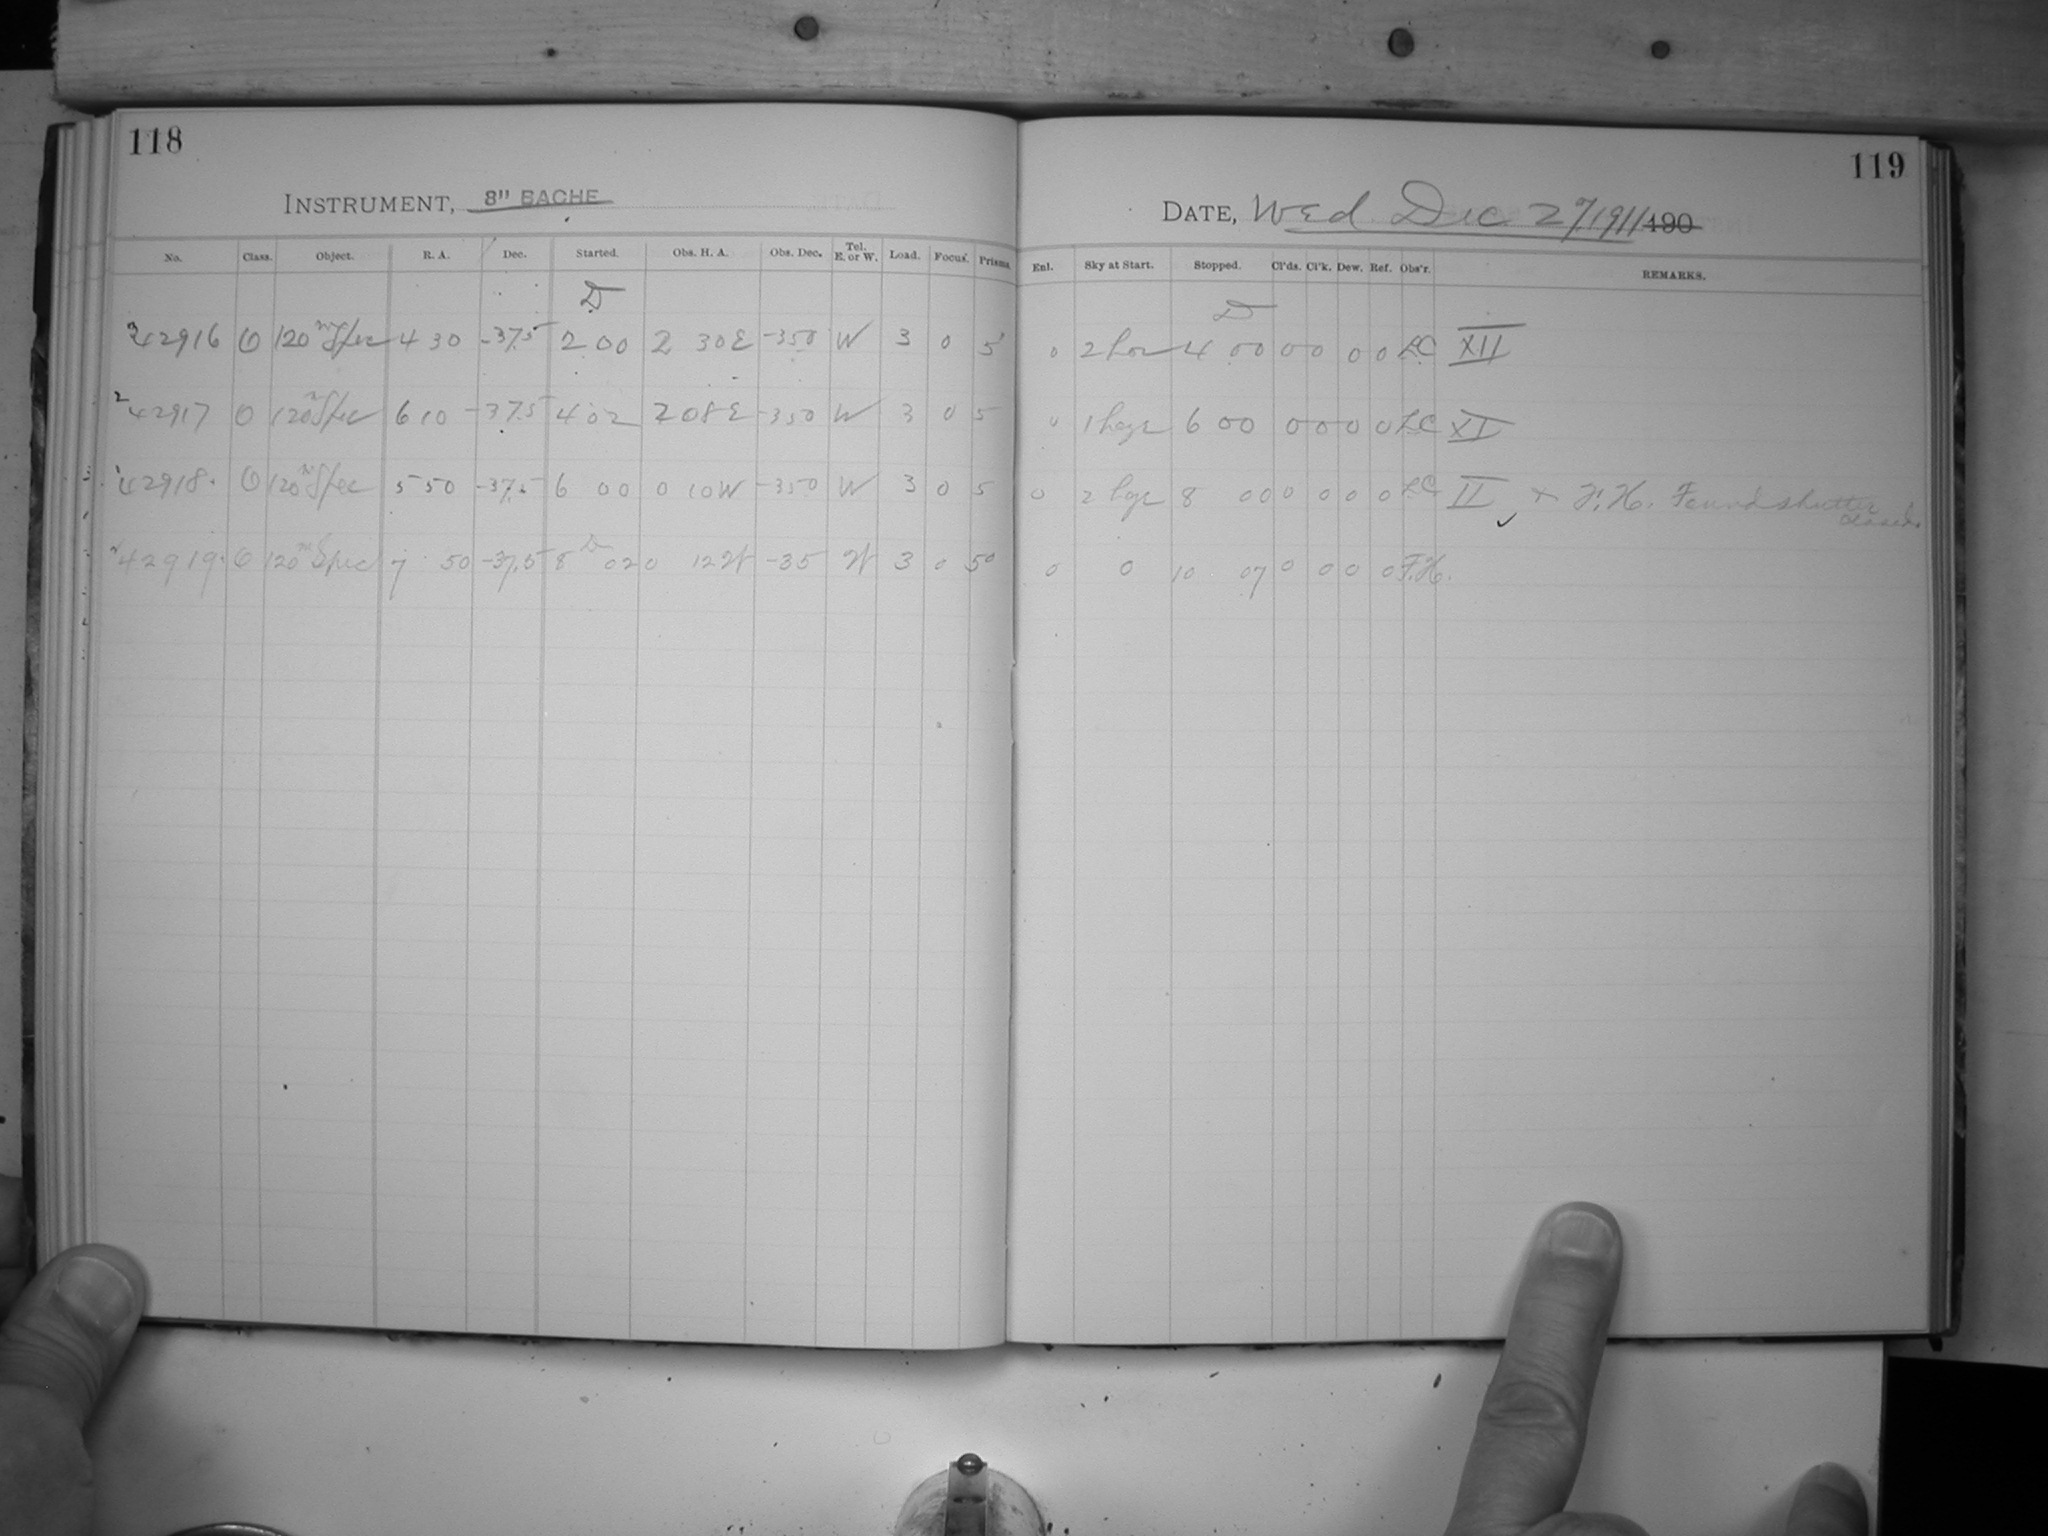 118
INSTRUMENT, 8" BACHE
No. Class. Object. R. A. Dec. Started. Obs. H. A. Obs. Dec. Tel. E. or W. Load. Focus. Prisms.
D
3 42916 O 120m Spec 4 30 -37.5 2 00 2 30E -350 W 3 0 5
2 42917 O 120m Spec 6 10 -37.5 4 02 2 08E -350 W 3 0 5
1 42918. O 120m Spec 5 50 -37.5 6 00 0 10W -350 W 3 0 5
D
42919. O 120m Spec 7 50 -37.5 8 02 0 12W -35 W 3 0 50
119
DATE, Wed Dec 27/1911 190
Enl. Sky at Start. Stopped. Cl'ds. Cl'k. Dew. Ref. Obs'r. REMARKS.
D
0 2 4 00 0 0 0 0 LC XII
0 1 6 00 0 0 0 0 LC XI
0 2 8 00 0 0 0 0 LC II + F.H. Found shutter
closed.
0 0 10 07 0 0 0 0 F.H.